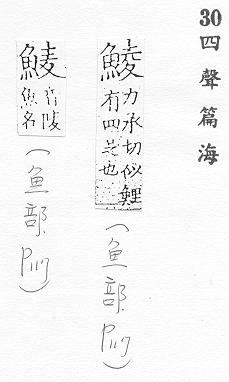 30四聲篇海
鯪
力承切似鯉
有四足也
(鱼部. P117)
音陵
魚名
(鱼部. P117)